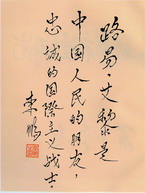 路易·艾黎是
中国人民的朋友，
忠诚的国際主义战士。
李鹏